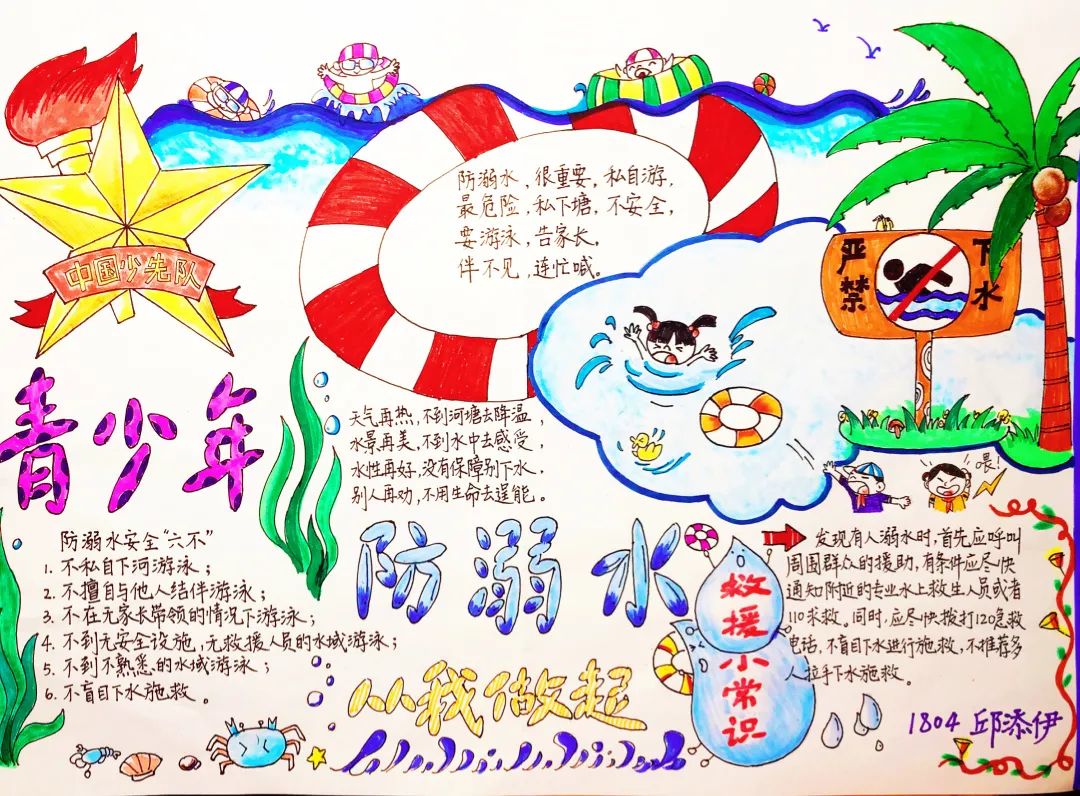 中国少先队
防溺水，很重要，私自游，
最危险，私下塘，不安全，
要游泳，告家长。
伴不见，连忙喊。
严禁
下水
青少年
天气再热，不到河塘去降温；
水景再美，不到水中去感受，
水性再好，没有保障别下水，
别人再劝，不用生命去逞能。
喂！
防溺水
防溺水安全“六不”
1. 不私自下河游泳；
2. 不擅自与他人结伴游泳；
3. 不在无家长带领的情况下游泳；
4. 不到无安全设施，无救援人员的水域游泳；
5. 不到不熟悉的水域游泳；
6. 不盲目下水施救。
从我做起
救援
小常识
发现有人溺水时，首先应呼叫
周围群众的援助，有条件应尽快
通知附近的专业水上救生人员或者
110求救。同时，应尽快拨打120急救
电话，不盲目下水进行施救，不推荐多
人拉手下水施救。
1804 邱添伊